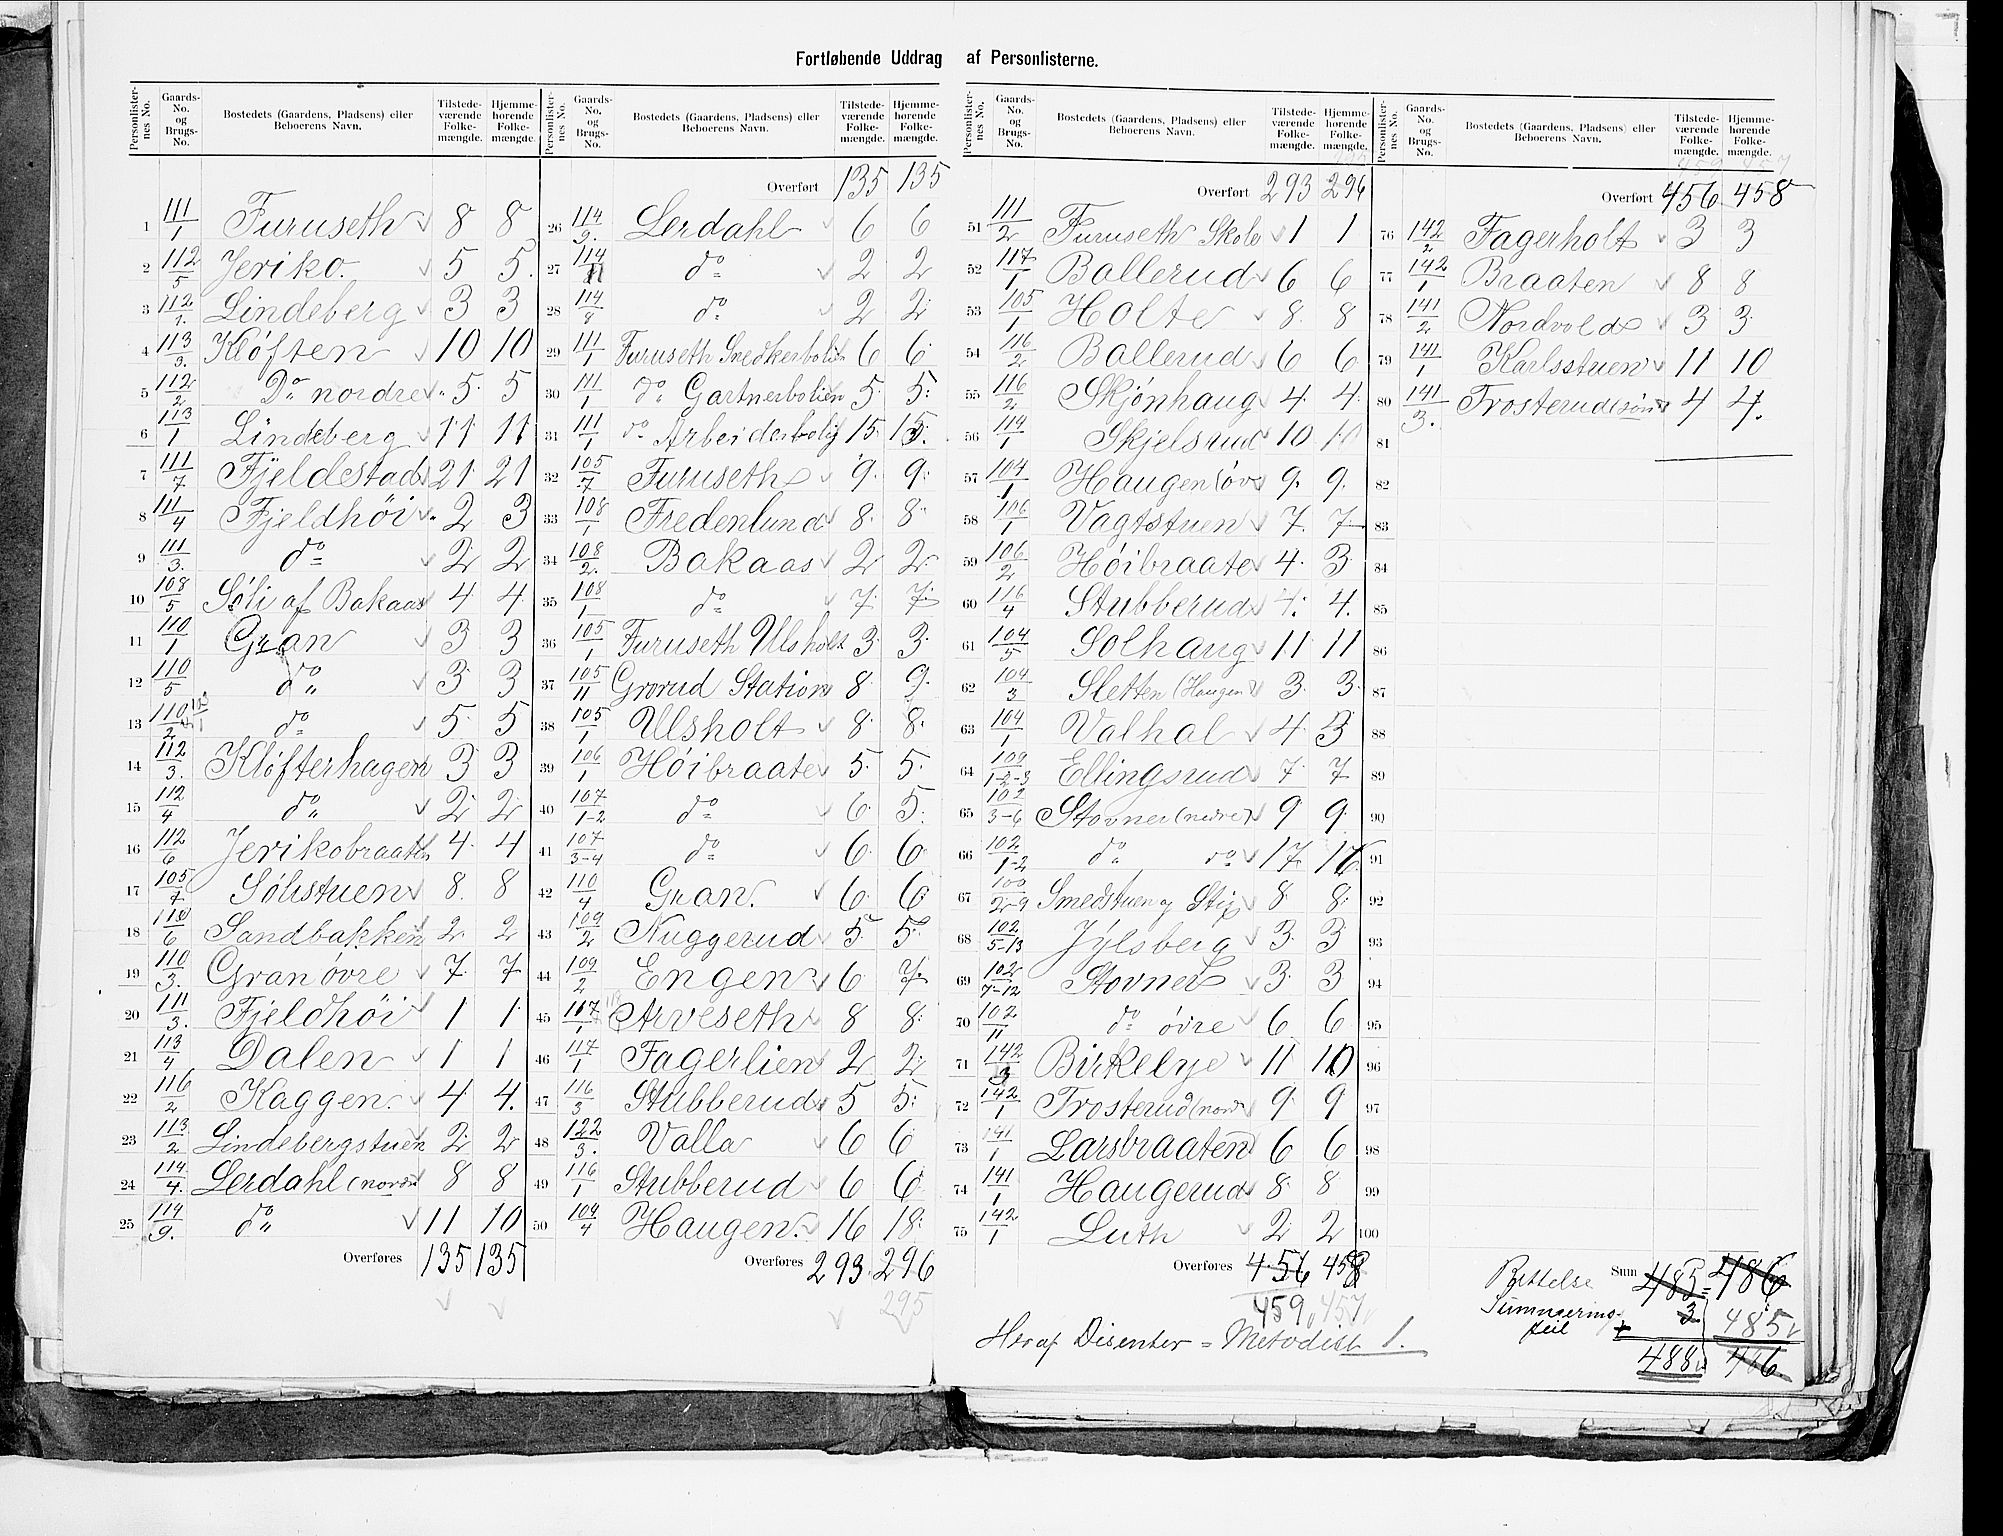 Fortløbende Uddrag af Personlisterne.
Personlisternes No. Gaards-No. og Brugs-No. Bostedets (Gaardens, Pladsens) eller Beboerens Navn. Tilstedeværende Folkemængde. Hjemmehørende Folkemængde.
1 111/1 Furuseth 8 8
2 112/5 Jeriko. 5 5.
3 112/1. Lindeberg 3 3
4 113/3. Kløften 10 10
5 112/2 Do nordre 5 5
6 113/1 Lindeberg 11 11
7 111/7 Fjeldestad 21 21
8 111/4 Fjeldhöi 2 3
9 111/3. do 2 2
10 108/5 Söli af Bakaas 4 4
11 110/1 Gran 3 3
12 110/5 do 3 3
13 110/2 do 5 5
14 112/3. Kløfterhagen 3 3
15 112/4 do 2 2
16 112/6 Jerikobraaten 4 4
17 105/7 Sölistuen 8 8
18 110/6 Sandbakken 2 2
19 110/3. Gran övre 7 7
20 111/3. Fjeldhöi 1 1
21 113/4 Dalen 1 1
22 116/2 Kaggen. 4 4.
23 113/2 Lindebergstuen 2 2
24 114/4. Lerdahl (nordre 8 8
25 114/9. do 11 10
Overføres 135 135
Personlisternes No. Gaards-No. og Brugs-No. Bostedets (Gaardens, Pladsens) eller Beboerens Navn. Tilstedeværende Folkemængde. Hjemmehørende Folkemængde.
Overført 135 135
26 114/9. Lerdahl 6 6
27 114/11 do 2 2
28 114/8 do 2 2
29 111/1 Furuseth Snedkerbolig 6 6
30 111/1 do Gartnerbolien 5 5
31 111/1 do Arbeiderbolig 15 15.
32 105/7 Furuseth 9 9
33 108/1 Fredenlund 8 8
34 108/2. Bakaas 2 2
35 108/1 do 7 7
36 105/1 Furuseth Ulsholt 3 3
37 105/11 Grorud Station 8 9
38 105/1 Ulsholt 8 8
39 106/1 Höibraaten 5 5
40 107/1-2 do 6 5.
41 107/3-4 do 6 6
42 110/4 Gran. 6 6
43 109/2 Nuggerud 5 5
44 109/2 Engen 6 7
45 117/1 Arveseth 8 8
46 117/1 Fagerlien 2 2
47 116/3 Stubberud 5 5
48 122/3. Valla 6 6
49 116/1 Stubberud 6 6
50 104/4 Haugen. 16 18
Overføres 293 296
295
Personlisternes No. Gaards-No. og Brugs-No. Bostedets (Gaardens, Pladsens) eller Beboerens Navn. Tilstedeværende Folkemængde. Hjemmehørende Folkemængde.
295
Overført 293 296
51 111/2 Furuseth Skole 1 1
52 117/1 Bollerud 6 6
53 105/1 Holte 8 8
54 116/2 Bollerud 6 6
55 116/2 Skjönhaug 4 4
56 119/1 Skjelsrud 10 10
57 104/1 Haugen (öv 9 9
58 106/1 Vagtstuen 7 7
59 106/2 Höibraaten 4 3
60 116/4 Stubberud 4 4.
61 104/5 Solhaug 11 11
62 104/3 Sletten (Haugen 3 3
63 104/1 Valhal 4 3
64 109/1-2-3 Ellingsrud 7 7
65 102/3-6 Stovner (nedre) 9 9
66 102/1-2 do do 17 16
67 100/2-9 Smedstuen og Stig 8 8
68 102/5-13 Jylsberg 3 3
69 102/7-12 Stovner 3 3
70 102/11 do övre 6 6
71 142/3 Birkelye 11 10
72 142/1 Trosterud (nord 9 9
73 141/1 Larsbraaten 6 6
74 141/1 Haugerud 8 8
75 142/1 Luth 2 2
Overføres 456 458
459 457
Heraf Disenter = Metodist 1.
Personlisternes No. Gaards-No. og Brugs-No. Bostedets (Gaardens, Pladsens) eller Beboerens Navn. Tilstedeværende Folkemængde. Hjemmehørende Folkemængde.
459 457
Overført 456 458
76 142/2 Fagerholt 3 3
77 142/1 Braaten 8 8
78 141/2 Nordvold 3 3
79 141/1 Karlsstuen 11 10
80 141/3. Trosterud (sön 4 4.
81
82
83
84
85
86
87
88
89
90
91
92
93
94
95
96
97
98
99
100
Rettelse Sum 485 486
Summeringsfeil + 3 485
488 486